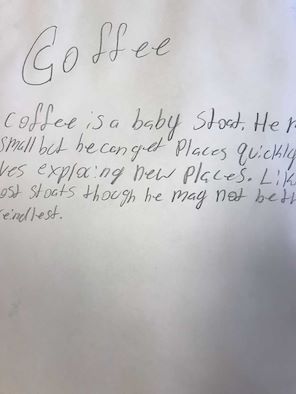 Coffee
Coffee is a baby stoat. He
small but he can get places quickly
exploring new places.
stoats though he may not be